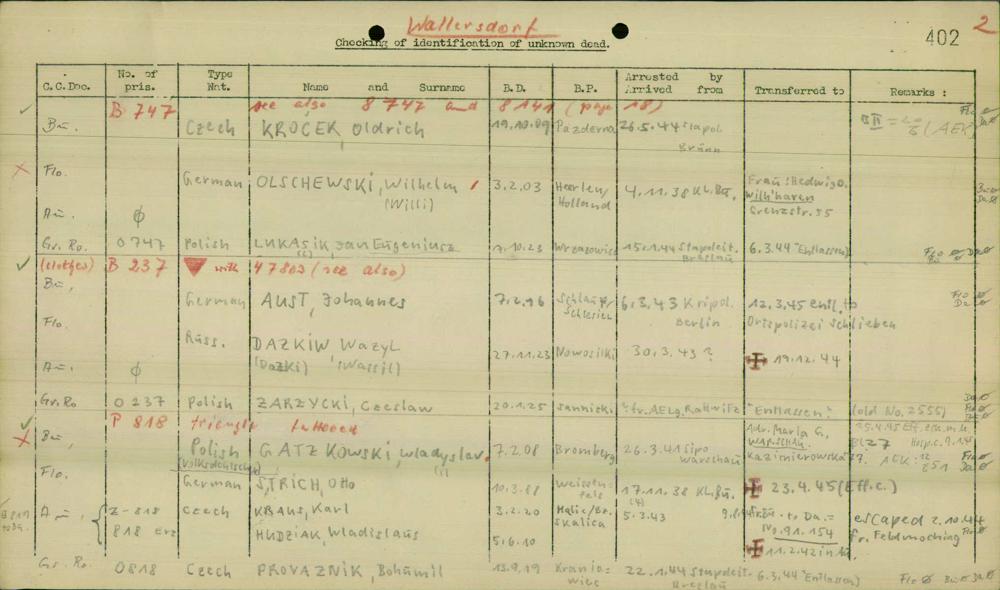 Wallersdorf
2
Checking of identification of unknown dead.
402
C.C.Doc. No. of pris. Type Nat. Name and Surname B.D. B.P. Arrested by Arrived from Transferred to Remarks :
B 747 see also 8747 and 8141 (page 18)
Bu. Czech KROCEK, Oldrich 19.10.09 Pazderna 26.5.44 Stapol. Brünn (AEK)
Flo. German OLSCHEWSKI, Wilhelm (Willi) 3.2.03 Heerlen/ Holland 4.11.38 Kl. Bu. Frau: Hedwig O. Wilh'haven Grenzstr. 55
Au. ϕ
Gr. Ro. 0747 Polish LUKASIK, Jan Eugeniusz 10.23 Wrzazowice 15.1.44 Stapoleit. Breslau 6.3.44 "Entlassen"
(clothes) B 237 with 47803 (see also)
Bu. German AUST, Johannes 7.2.96 Schlesien 6.3.43 Kripol. Berlin 12.3.45 entl. to Ortspolizei Schlieben
Flo. Russ. DAZKIW Wazyl (Dazki) (Wassil) 27.11.23 Nowosilki 30.3.43 ? 19.12.44
Au. ϕ
Gr. Ro 0237 Polish ZARZYCKI, Czeslaw 20.1.25 Sannicki AELg. Rattwitz "Entlassen" (old No. 2555)
P 818 triangle tattooed
Bu. Polish (Volksdeutscher) GATZKOWSKI, Wladyslav 7.2.08 Bromberg 26.3.41 Sipo Warschau Adr. Marla G, WARSCHAU. Kazimierowska 27.
Flo. German STRICH, Otto 10.3.88 Weissenfels 17.11.38 Kl. Bu. 23.4.45 (Eff.c.)
Au. Z-818 Czech KRAUS, Karl 3.2.20 Skalica 5.3.43 to Da.= No. 91.154 escaped 2.10.44 fr. Feldmoching
818 Erz HUDZIAK, Wladislaus 5.6.10 11.2.42 in Au.
Gr. Ro. 0818 Czech PROVAZNIK, Bohumil 13.9.19 22.1.44 Stapoleit. Breslau 6.3.44 "Entlassen"